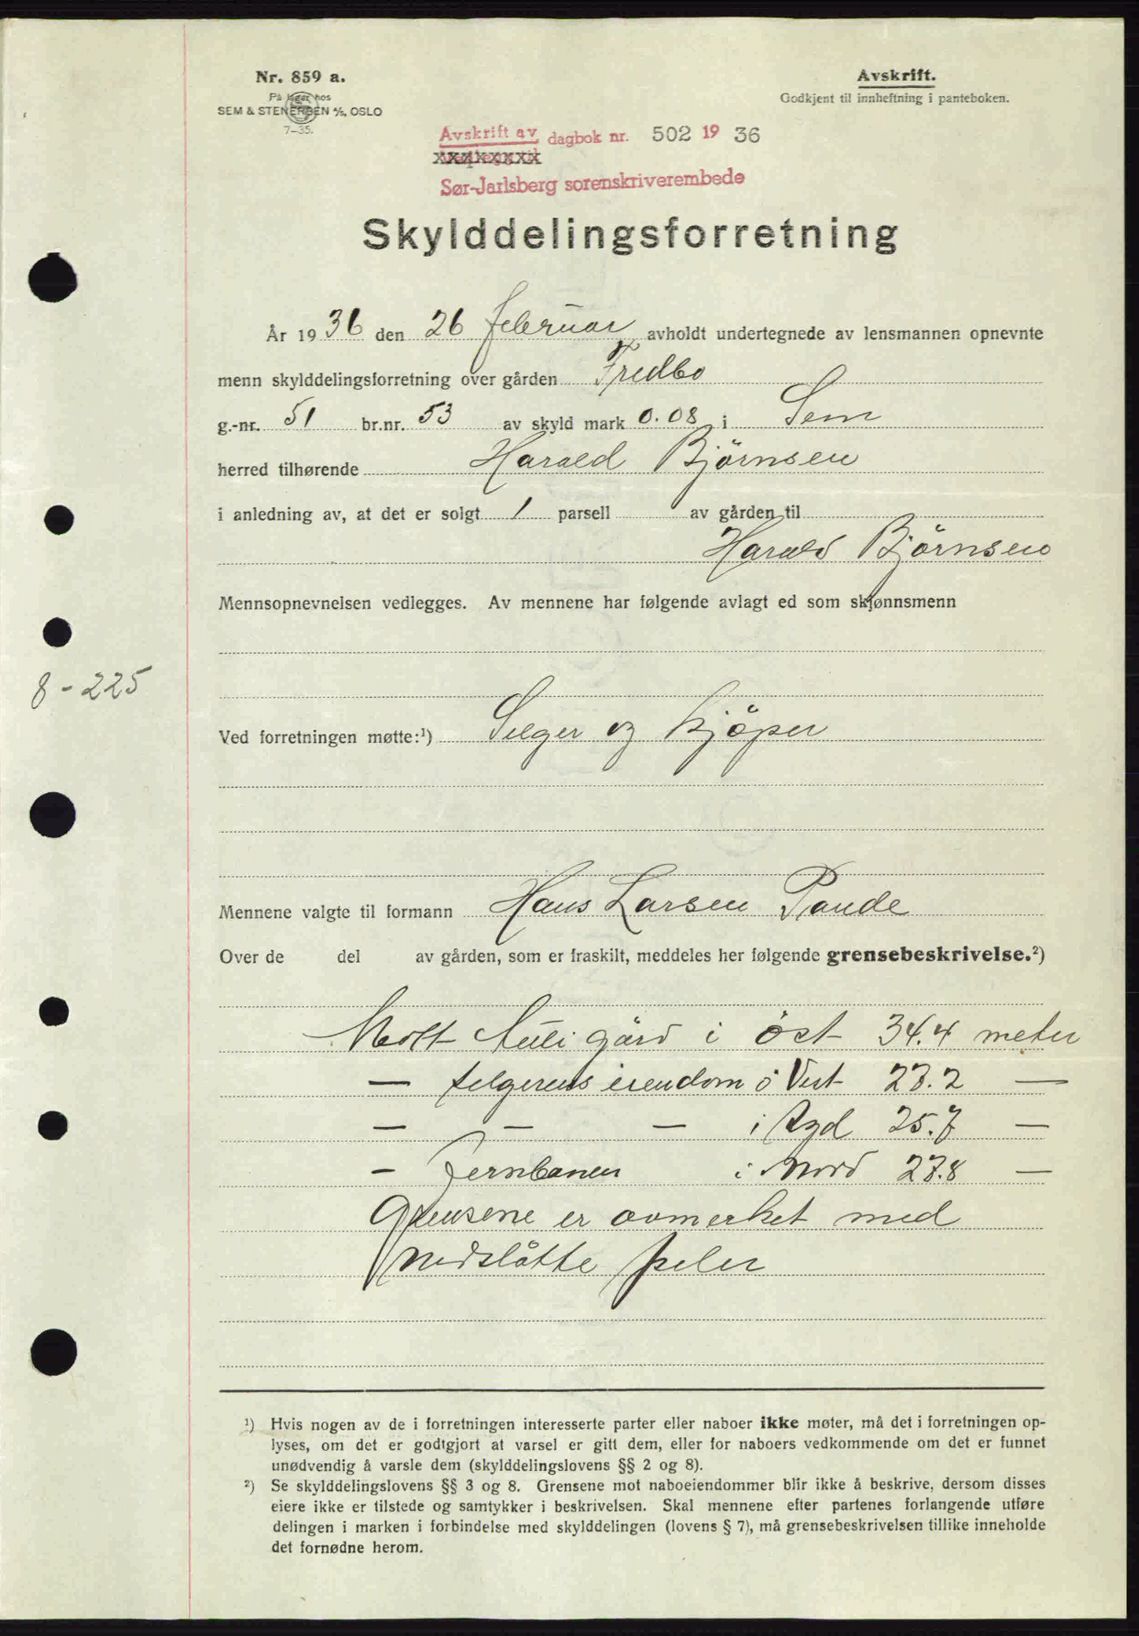 Nr. 859 a.
På lager hos
SEM & STENERSEN A/S, OSLO
7-35.
Avskrift.
Godkjent til innheftning i panteboken.
Avskrift av dagbok nr. 502 19 36
Sør-Jarlsberg sorenskriverembede
Skylddelingsforretning
År 19 36 den 26 februar avholdt undertegnede av lensmannen opnevnte
menn skylddelingsforretning over gården Fredbo
g.-nr. 51 br.nr. 53 av skyld mark 0.08 i Sem
herred tilhørende Harald Björnsen
i anledning av, at det er solgt 1 parsell av gården til
Harald Björnsen
Mennsopnevnelsen vedlegges. Av mennene har følgende avlagt ed som skjønnsmenn
8-225
Ved forretningen møtte:¹) Selger og kjöper
Mennene valgte til formann Hans Larsen Rande
Over de del av gården, som er fraskilt, meddeles her følgende grensebeskrivelse.²)
Mott Auli gård i öst 34.4 meter
— selgerens eiendom i Vest 23.2 —
— — — i syd 25.7 —
— Jernbanen i Nord 27.8 —
Grensene er avmerket med
nedslåtte peler
¹) Hvis nogen av de i forretningen interesserte parter eller naboer ikke møter, må det i forretningen op-
lyses, om det er godtgjort at varsel er gitt dem, eller for naboers vedkommende om det er funnet
unødvendig å varsle dem (skylddelingslovens §§ 2 og 8).
²) Se skylddelingslovens §§ 3 og 8. Grensene mot naboeiendommer blir ikke å beskrive, dersom disses
eiere ikke er tilstede og samtykker i beskrivelsen. Skal mennene efter partenes forlangende utføre
delingen i marken i forbindelse med skylddelingen (lovens § 7), må grensebeskrivelsen tillike inneholde
det fornødne herom.